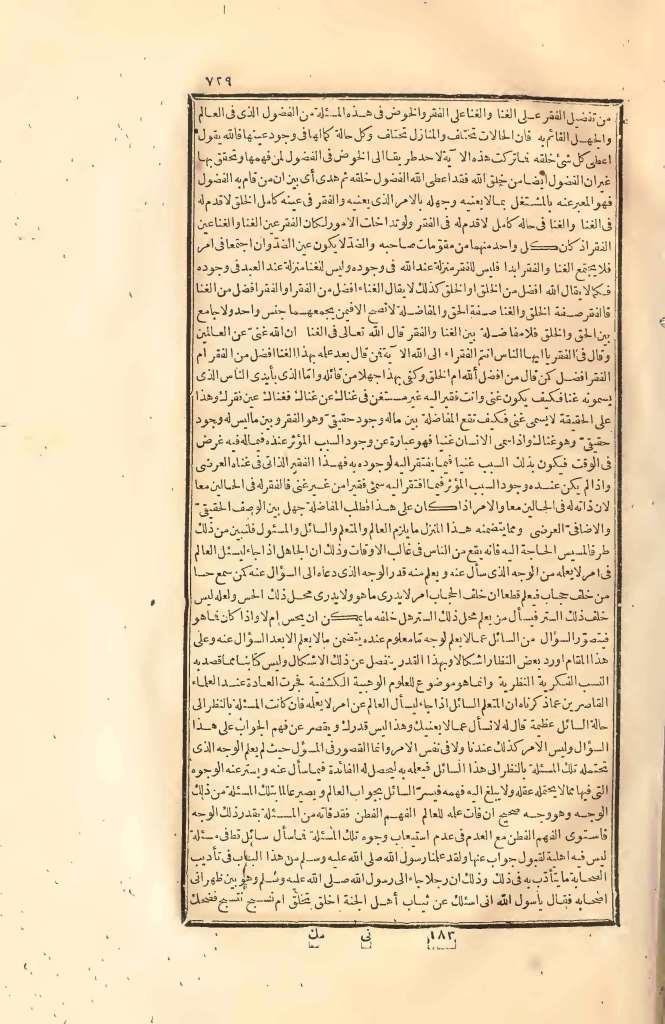 ٧٢٩
من تفضيل الفقر على الغنا والغنا على الفقر والخوض فى هذه المسئلة من الفضول الذى فى العالم
والجهل القائم به فان الحالات تختلف والمنازل تختلف وكل حالة كمالها فى وجود عينها فالله يقول
اعطى كل شئ خلقه فما تركت هذه الآية لاحد طريقا الى الخوض فى الفضول لمن فهمها وتحقق بها
غيران الفضول ايضا من خلق الله فقد اعطى الله الفضول خلقه ثم هدى أى بين ان من قام به الفضول
فهو المعبر عنه بالمشتغل بما لا يعنيه وجهله بالامر الذى يعنيه والفقر فى عينه كامل الخلق لاقدم له
فى الغنا والغنا فى حاله كامل لاقدم له فى الفقر ولو تداخلت الامور لكان الفقر عين الغنا والغنا عين
الفقر اذ كان كل واحد منهما من مقومات صاحبه والضد لا يكون عين الضد وان اجتمعا فى امر
فلا يجتمع الغنا والفقر ابدا فليس للفقر منزلة عند الله فى وجوده وليس للغنا منزلة عند العبد فى وجوده
فكما لا يقال الله افضل من الخلق او الخلق كذلك لا يقال الغناء افضل من الفقر او الفقر افضل من الغنا
فالفقر صفة الخلق والغنا صفة الحق والمفاضلة لا تصح الا فيمن يجمعهما جنس واحد ولا جامع
بين الحق والخلق فلا مفاضلة بين الغنا والفقر قال الله تعالى فى الغنا ان الله غنى عن العالمين
وقال فى الفقر يا ايها الناس انتم الفقراء الى الله الآية فمن قال بعد علمه بهذا الغنا افضل من الفقر ام
الفقر افضل كمن قال من افضل ألله ام الخلق وكفى بهذا جهلا من قائله واما الذى بأيدى الناس الذى
يسمونه غنا فكيف يكون غنى وانت فقير اليه غير مستغن فى غناك عن غناك فغناك عين فقرك وهذا
على الحقيقة لا يسمى غنى فكيف تقع المفاضلة بين ما له وجود حقيقى وهو الفقر وبين ما ليس له وجود
حقيقى وهو غناك واذا سمى الانسان غنيا فهو عبارة عن وجود السبب المؤثر عنده فيما له فيه غرض
فى الوقت فيكون بذلك السبب غنيا فيما يفتقر اليه لوجوده به فهذا الفقير الذاتى فى غناه العرضى
واذا لم يكن عنده وجود السبب المؤثر فيما افتقر اليه سمى فقيرا من غير غنى فالفقر له فى الحالين معا
لان ذاته له فى الحالين معا والامر اذا كان على هذا فطلب المفاضلة جهل بين الوصف الحقيقى
والاضافى العرضى ومما يتضمنه هذا المنزل ما يلزم العالم والمتعلم والسائل والمسئول فلنبين من ذلك
طرفا لمسيس الحاجة اليه فانه يقع من الناس فى غالب الاوقات وذلك ان الجاهل اذا جاء ليسئل العالم
فى امر لا يعلمه من الوجه الذى سأل عنه ويعلم منه قدر الوجه الذى دعاه الى السؤال عنه كمن سمع حسا
من خلف حجاب فيعلم قطعا ان خلف الحجاب امر لا يدرى ما هو ولا يدرى محل ذلك الحس ولعله ليس
خلف ذلك الستر فيسأل من يعلم محل ذلك الستر هل خلفه ما يمكن ان يحس ام لا واذا كان فما هو
فيتصور السؤال من السائل عما لا يعلم لوجه تما معلوم عنده يتضمن ما لا يعلم الا بعد السؤال عنه وعلى
هذا المقام اورد بعض النظار اشكالا وبهذا القدر ينفصل عن ذلك الاشكال وليس كتابنا مما قصد به
النسب الفكرية النظرية وانما هو موضوع للعلوم الوهبية الكشفية فجرت العادة عند العلماء
القاصرين عما ذكرناه ان المتعلم السائل اذا جاء ليسأل العالم عن امر لا يعلمه فان كانت المسئلة بالنظر الى
حالة السائل عظيمة قال له لا تسأل عما لا يعنيك وهذا ليس قدرك ويقصر عن فهم الجواب على هذا
السؤال وليس الامر كذلك عندنا ولا فى نفس الامر وانما القصور فى المسؤل حيث لم يعلم الوجه الذى
تحتمله تلك المسئلة بالنظر الى هذا السائل فيعلمه به ليحصل له الفائدة فيما سأل عنه ويستر عنه الوجوه
التى فيها مما لا يحتمله عقله ولا يبلغ اليه فهمه فيسر السائل بجواب العالم ويصير عالما بتلك المسئلة من ذلك
الوجه وهو وجه صحيح ان فات علمه للعالم الفهم الفطن فقد فاته من المسئلة بقدر ذلك الوجه
فاستوى الفهم الفطن مع الفدم فى عدم استيعاب وجوه تلك المسئلة فما سأل سائل قط فى مسئلة
ليس فيه اهلية لقبول جواب عنها ولقد علمنا رسول الله صلى الله عليه وسلم من هذا الباب فى تأديب
الصحابة ما يتأدب به فى ذلك وذلك ان رجلا جاء الى رسول الله صلى الله عليه وسلم وهو بين ظهرانى
اصحابه فقال يا رسول الله انى اسئلك عن ثياب أهل الجنة اخلق تخلق ام نسيج تنسج فضحك
١٨٣ نى مك